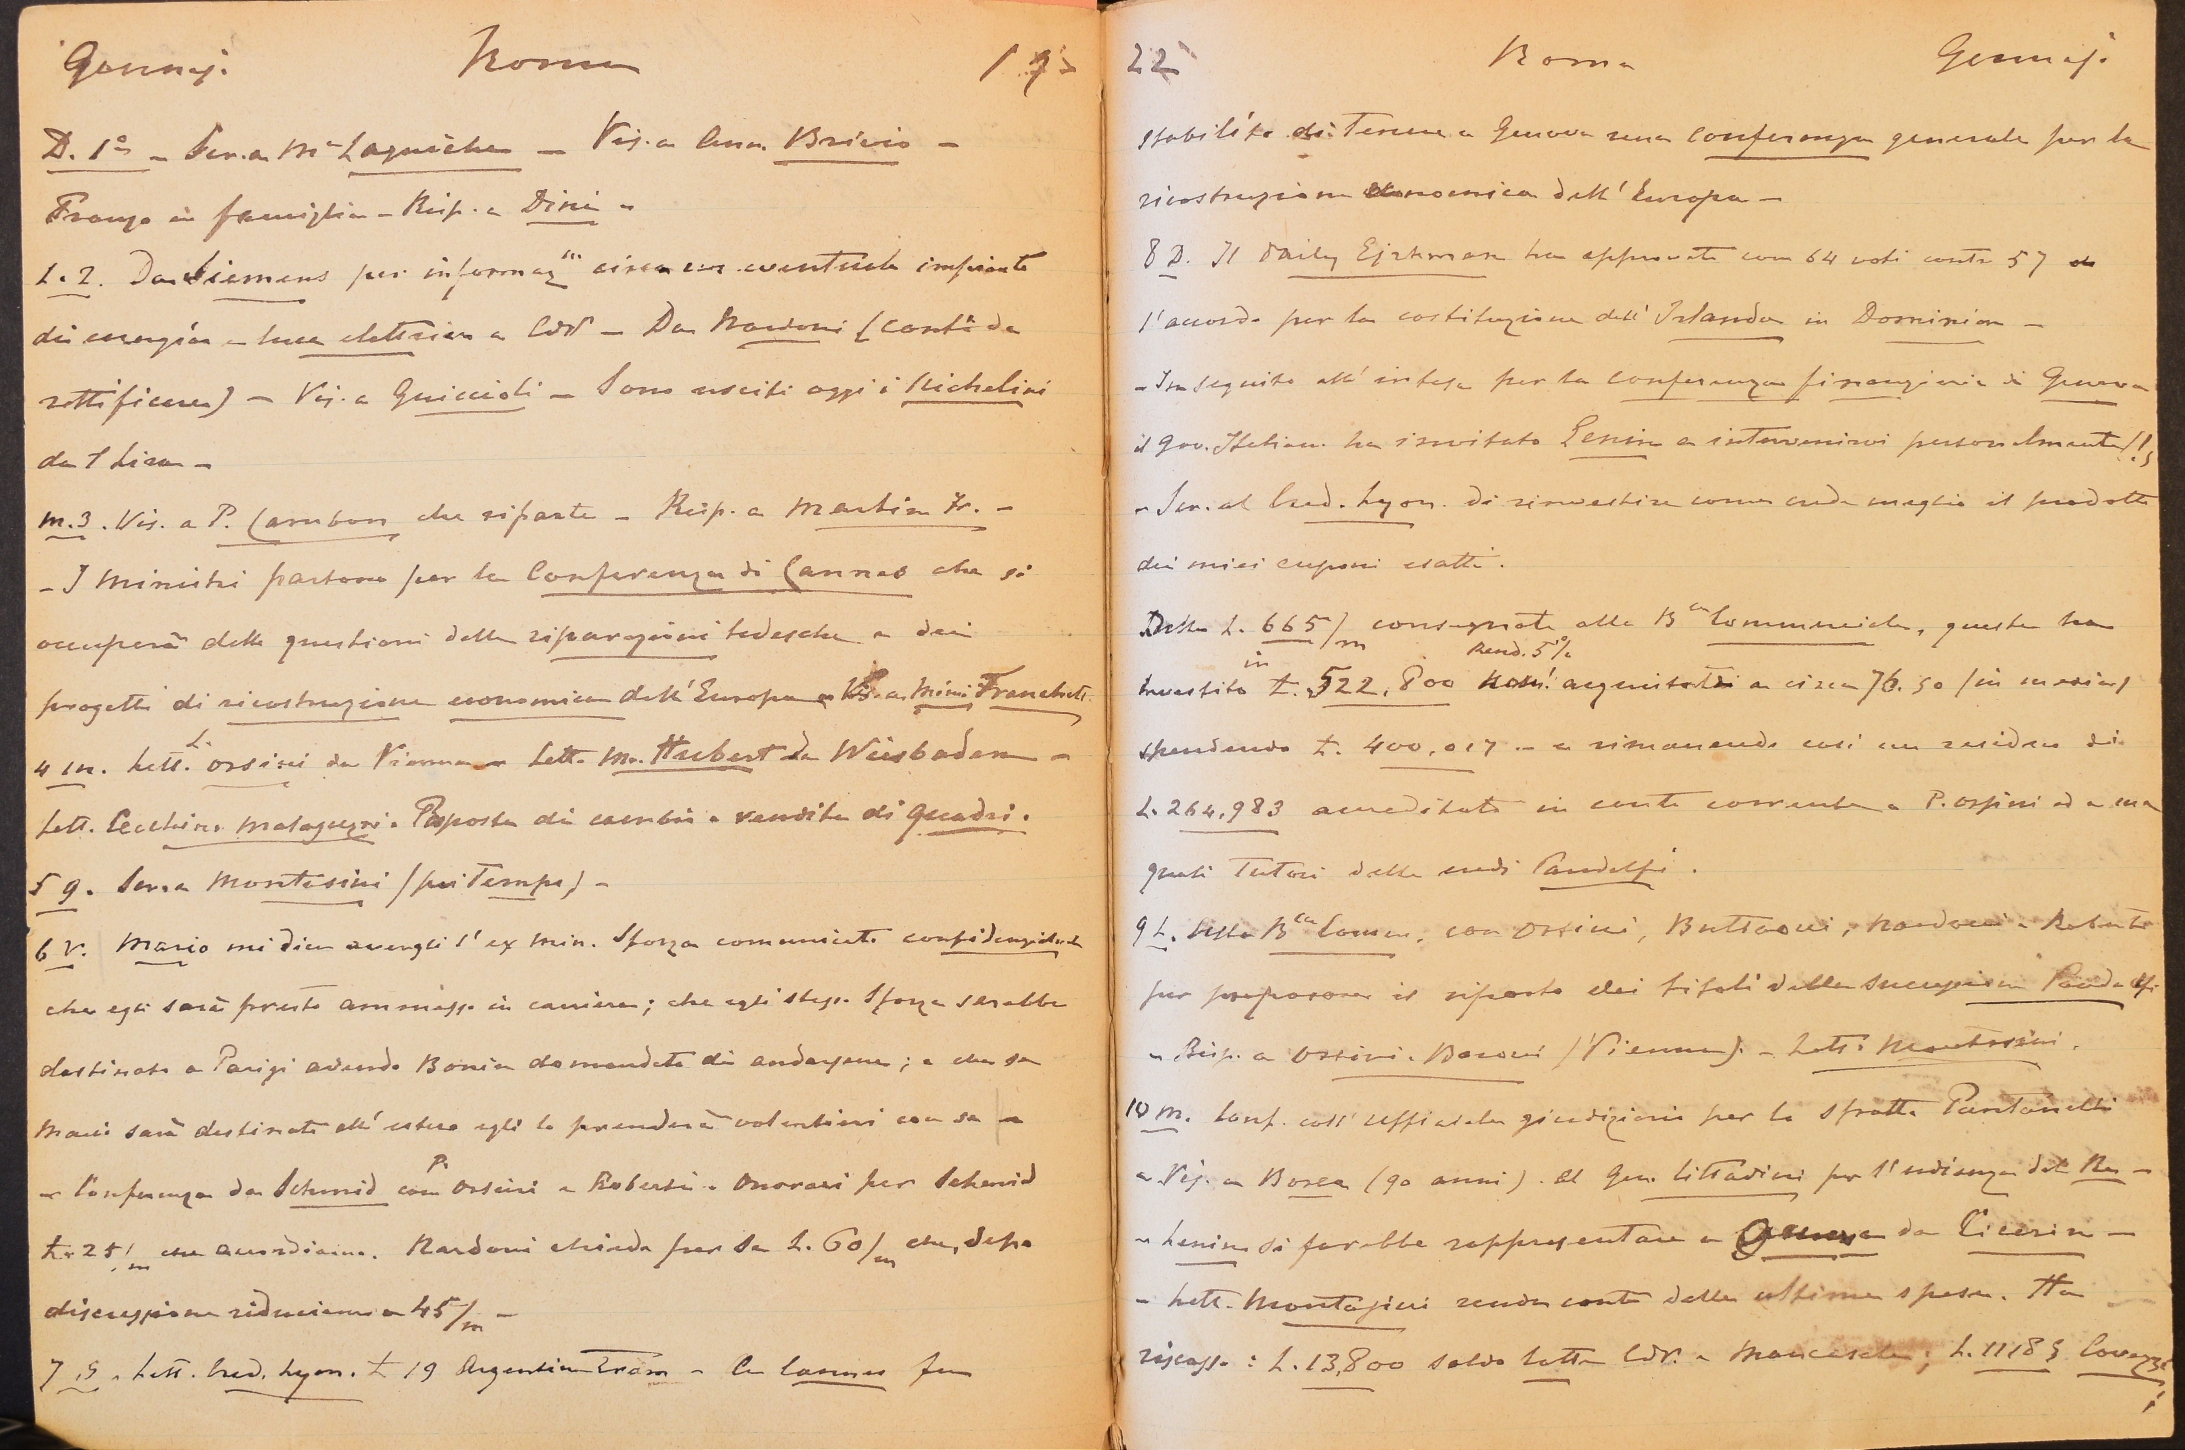 Gennajo. Roma 19
D. 1° - Scr. a Me Laguiche - Vis. a Ann. Brivio -
Pranzo in famiglia - Risp. a Dini -
L. 2. Da Siemens per informazni circa un eventuale impianto
di energia e luce elettrica a - Da Nardoni (conti da
rettificare) - Vis. a Guiccioli - Sono usciti oggi i Michelini
da
M. 3. Vis. a P. Cambon che riparte - Risp. a Martin Fr. -
- I Ministri partono per la Conferenza di Cannes che si
occuperà delle questioni delle riparazioni tedesche e dei
progetti di ricostruzione economica dell'Europa - Vis. a Mimì Franchetti
4 m. Lett. L. Orsini da Vienna - Lett. M. Hubert da Wiesbaden -
Lett. Cecchino Malaguzzi. Proposta di cambio e vendita di quadri.
5 g. Scr. a Montesini (pei Tempi) -
6 V. Mario mi dice avergli l'ex Min. Sforza comunicato confidenzialmte
che egli sarà presto ammesso in carriera; che egli stesso Sforza sarebbe
destinato a Parigi avendo Bonin domandato di andarsene; e che se
Mario sarà destinato all'estero egli lo prenderà volentieri con se -
- Conferenza da Schmid con P. Orsini e Roberti. Onorari per Schmid
L. 25/m che accordiamo. Nardoni chiede per se L. 60/m che, dopo
discussione riduciamo a 45/m -
7 S. Lett. Cred. Lyon. L 19 Argentin Tram - A Cannes fu
22 Roma Gennajo.
stabilito di tenere a Genova una conferenza generale per la
ricostruzione economica dell'Europa -
8 D. Il Daily Ejreman ha approvato con 64 voti contro 57
l'accordo per la costituzione dell'Irlanda in Dominion -
- In seguito all'intesa per la conferenza finanziaria di Genova
il gov. Italiano ha invitato Lenin a intervenirvi personalmente!!
- Scr. al Cred. Lyon. di rinvestire come crede meglio il prodotto
dei miei cuponi esatti.
Delle L. 665/m consegnate alla Bca Commerciale, questa ha
investito in L. 522,800 Rend. 5% nom! acquistate a circa 76.50 (in media)
spendendo L. 400,017 - e rimanendo così un residuo di
L. 264,983 accreditato in conto corrente a P. Orsini ed a me
quali Tutori delle eredi Pandolfi.
9 L. Bca Comm. con Orsini, Buttaoni, Nardoni e Roberto
per preparare il riparto dei titoli della successione Pandolfi
- Risp. a Orsini. Baroni (Vienna). - Lett. Montesini.
10 M. Conf. coll'ufficiale giudiziario per lo sfratto Pantanelli
- Vis. a Bosca (90 anni). Al Gen. Cittadini per l'udienza del Re -
- Lenin si farebbe rappresentare a Genova da Cicerin -
- Lett. Montesini rende conto delle ultime spese. Ha
riscosso: L. 13,800 saldo latte e ; L. 11185